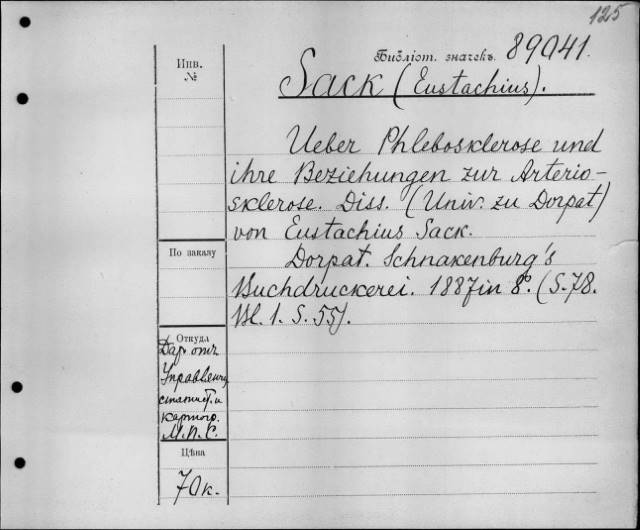 125
Инв. №
Библіот. значекъ 89041.
Sack (Eustachius).
Ueber Phlebosklerose und
ihre Beziehungen zur Arterio-
sklerose. Diss. (Univ. zu Dorpat)
von Eustachius Sack.
Dorpat. Schnakenburg's
Buchdruckerei. 1887 in 8°. (S. 78.
Bl. 1. S. 55).
По заказу
Откуда
Дар отъ
Управленія
статист. и
картогр.
М.П.С.
Цѣна
70к.